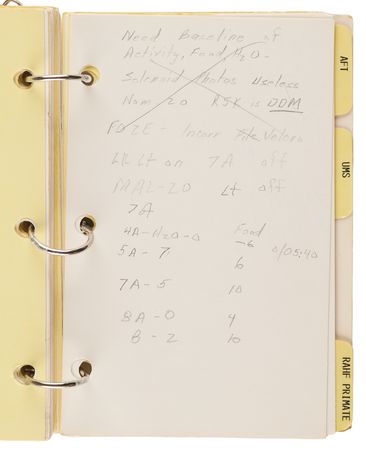 Need Baseline of
Activity, Food H2O -
Solenoid Photos Useless
Nom 20 RSK is DDM
- Incorr File
Lt on 7A off
MAL-20 Lt off
7A
4A-H2O-0 Food
5A - 7 -6
6
7A - 5 10
8A - 0 4
B - 2 10
AFT
UMS
RAHF PRIMATE